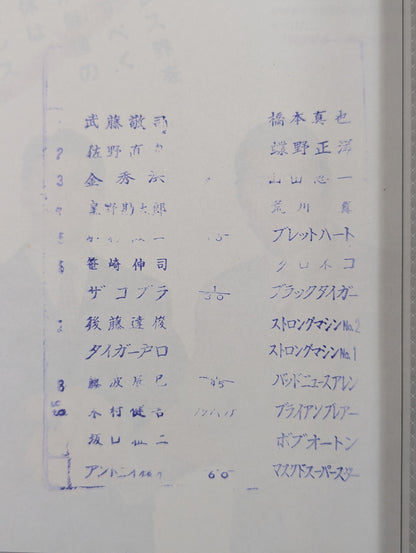 武藤敬司 橋本真也
2 佐野直 蝶野正洋
3 金秀洪 山田恵一
4 野則太郎 荒川真
5 15 ブレットハート
6 笹崎伸司 クロネコ
ザコブラ 1/30 ブラックタイガー
7 後藤達俊 ストロングマシンNo.2
タイガー戸口 ストロングマシンNo.1
8 藤波辰巳 45 バッドニュースアレン
木村健吾 ブライアンブレアー
坂口征二 ボブオートン
アントニオ猪木 60 マスクドスーパースター